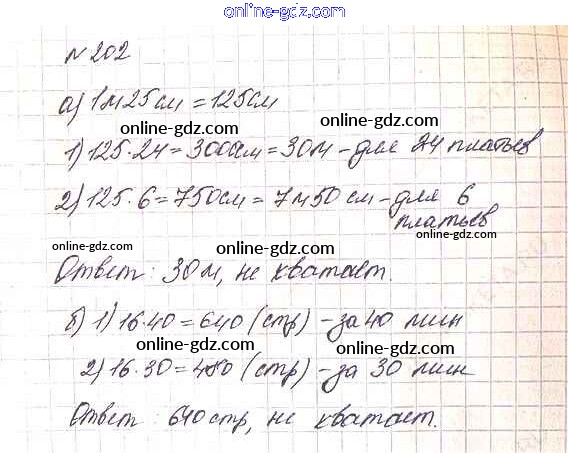 online-gdz.com
№202
а) 1м25см = 125см
online-gdz.com online-gdz.com
1) 125·24 = 3000см = 30м - для 24 платьев
2) 125·6 = 750см = 7м50см - для 6
платьев
online-gdz.com online-gdz.com online-gdz.com
Ответ: 30м, не хватает.
online-gdz.com online-gdz.com
б) 1) 16·40 = 640 (стр) - за 40 мин
online-gdz.com online-gdz.com
2) 16·30 = 480 (стр) - за 30 мин
online-gdz.com online-gdz.com
Ответ: 640 стр, не хватает.
online-gdz.com